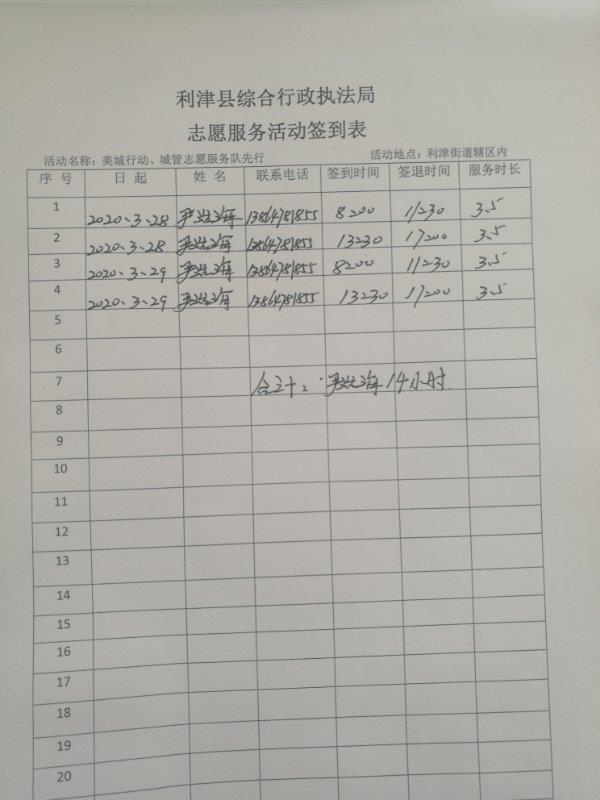 利津县综合行政执法局
志愿服务活动签到表
活动名称：美城行动、城管志愿服务队先行 活动地点：利津街道辖区内
序 号 日 起 姓 名 联系电话 签到时间 签退时间 服务时长
1 2020.3.28 海 13864781855 8:00 11:30 3.5
2 2020.3.28 海 13864781855 13:30 17:00 3.5
3 2020.3.29 海 13864781855 8:00 11:30 3.5
4 2020.3.29 海 13864781855 13:30 17:00 3.5
5
6
7 合计： 海 14小时.
8
9
10
11
12
13
14
15
16
17
18
19
20